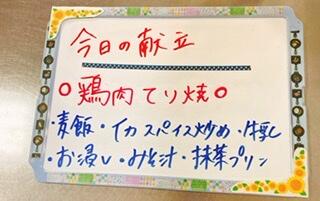 今日の献立
○鶏肉てり焼○
・麦飯・イカスパイス炒め・
・お浸し・みそ汁・抹茶プリン